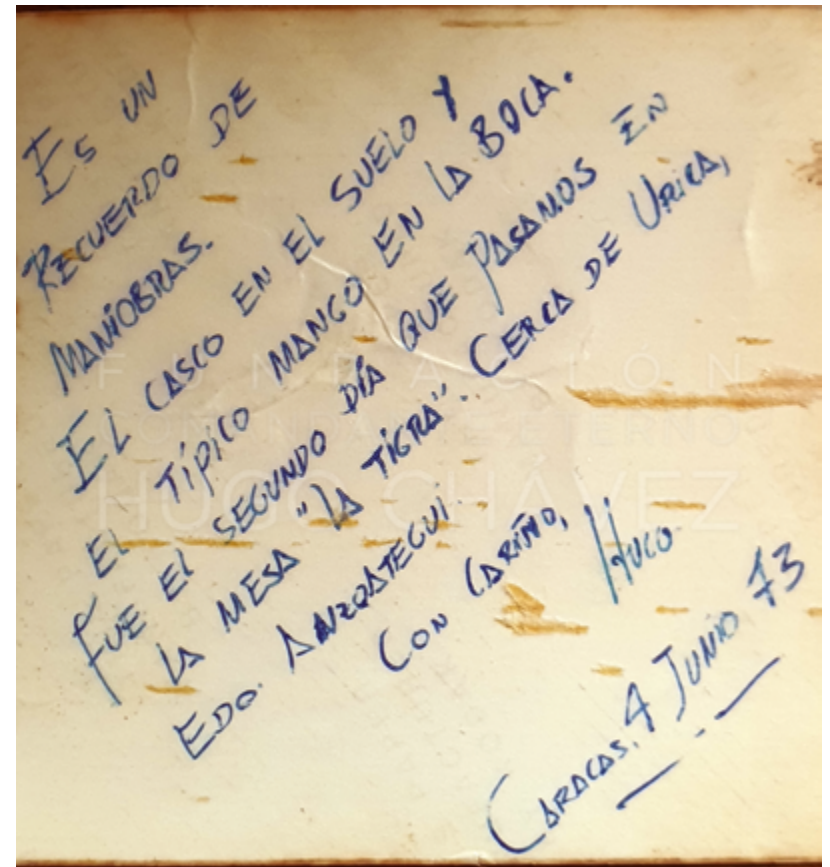 ES UN
RECUERDO DE
MANIOBRAS.
EL CASCO EN EL SUELO Y
EL TÍPICO MANGO EN LA BOCA.
FUE EL SEGUNDO DÍA QUE PASAMOS EN
LA MESA "LA TIGRA". CERCA DE URICA,
EDO. ANZOATEGUI.
CON CARIÑO, HUGO.
CARACAS, 4 JUNIO 73
FUNDACIÓN
COMANDANTE ETERNO
HUGO CHÁVEZ